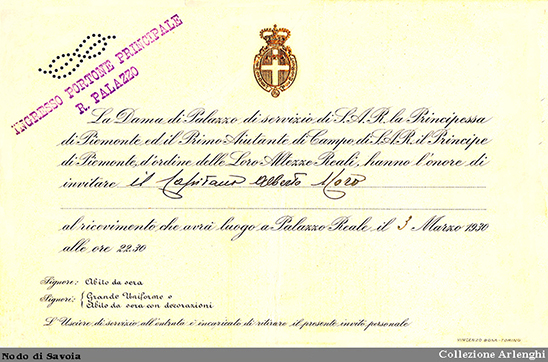 INGRESSO PORTONE PRINCIPALE
R. PALAZZO
La Dama di Palazzo di servizio di S.A.R. la Principessa
di Piemonte ed il Primo Aiutante di Campo di S.A.R. il Principe
di Piemonte, d'ordine delle Loro Altezze Reali, hanno l'onore di
invitare il Capitano Alberto Moro
al ricevimento che avrà luogo a Palazzo Reale il 3 Marzo 1930
alle ore 22.30
Signore: Abito da sera
Signori: { Grande Uniforme o
Abito da sera con decorazioni
L'Usciere di servizio all'entrata è incaricato di ritirare il presente invito personale
VINCENZO BONA - TORINO
Nodo di Savoia
Collezione Arlenghi